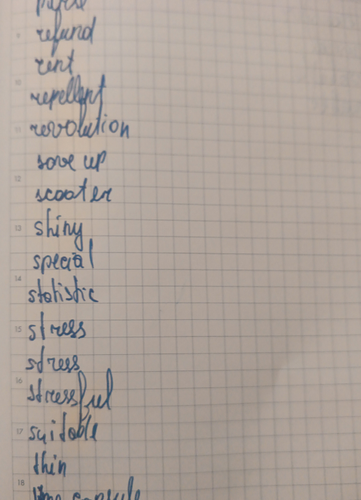 9
refund
rent
10
repellent
11
revolution
save up
12
scooter
13
shiny
special
14
statistic
15
stress
stress
16
stressful
17
suitable
thin
18
time capsule